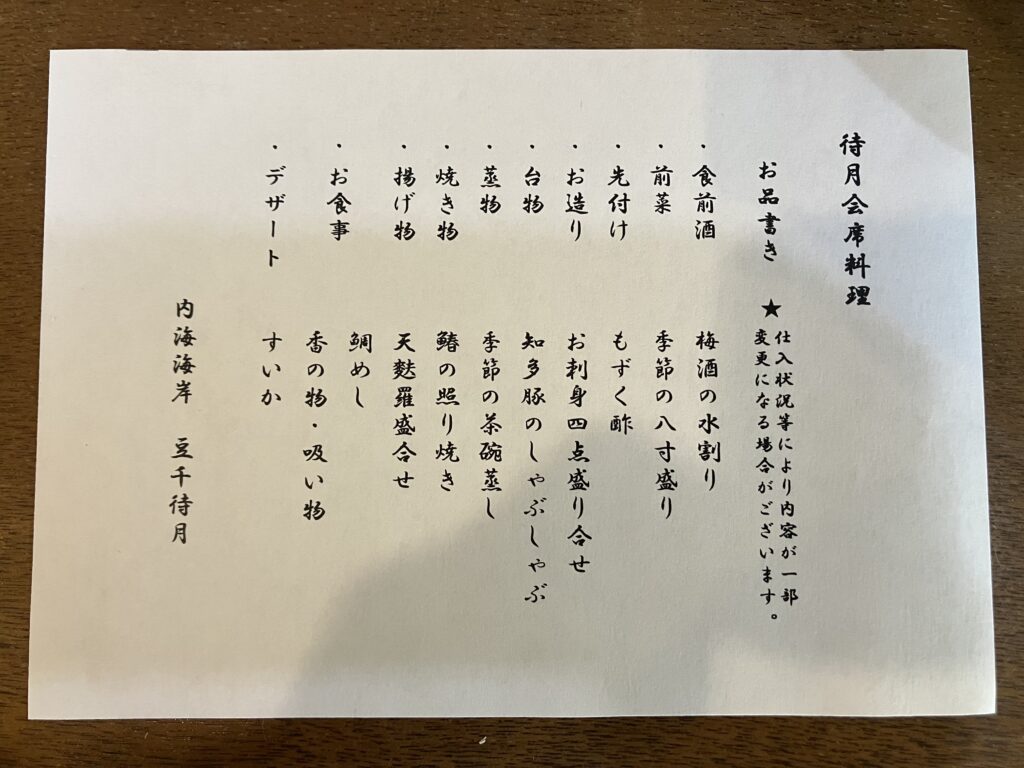 待月会席料理
お品書き ★仕入状況等により内容が一部
変更になる場合がございます。
・食前酒 梅酒の水割り
・前菜 季節の八寸盛り
・先付け もずく酢
・お造り お刺身四点盛り合せ
・台物 知多豚のしゃぶしゃぶ
・蒸物 季節の茶碗蒸し
・焼き物 鰆の照り焼き
・揚げ物 天麩羅盛合せ
・お食事 鯛めし
香の物・吸い物
・デザート すいか
内海海岸 豆千待月